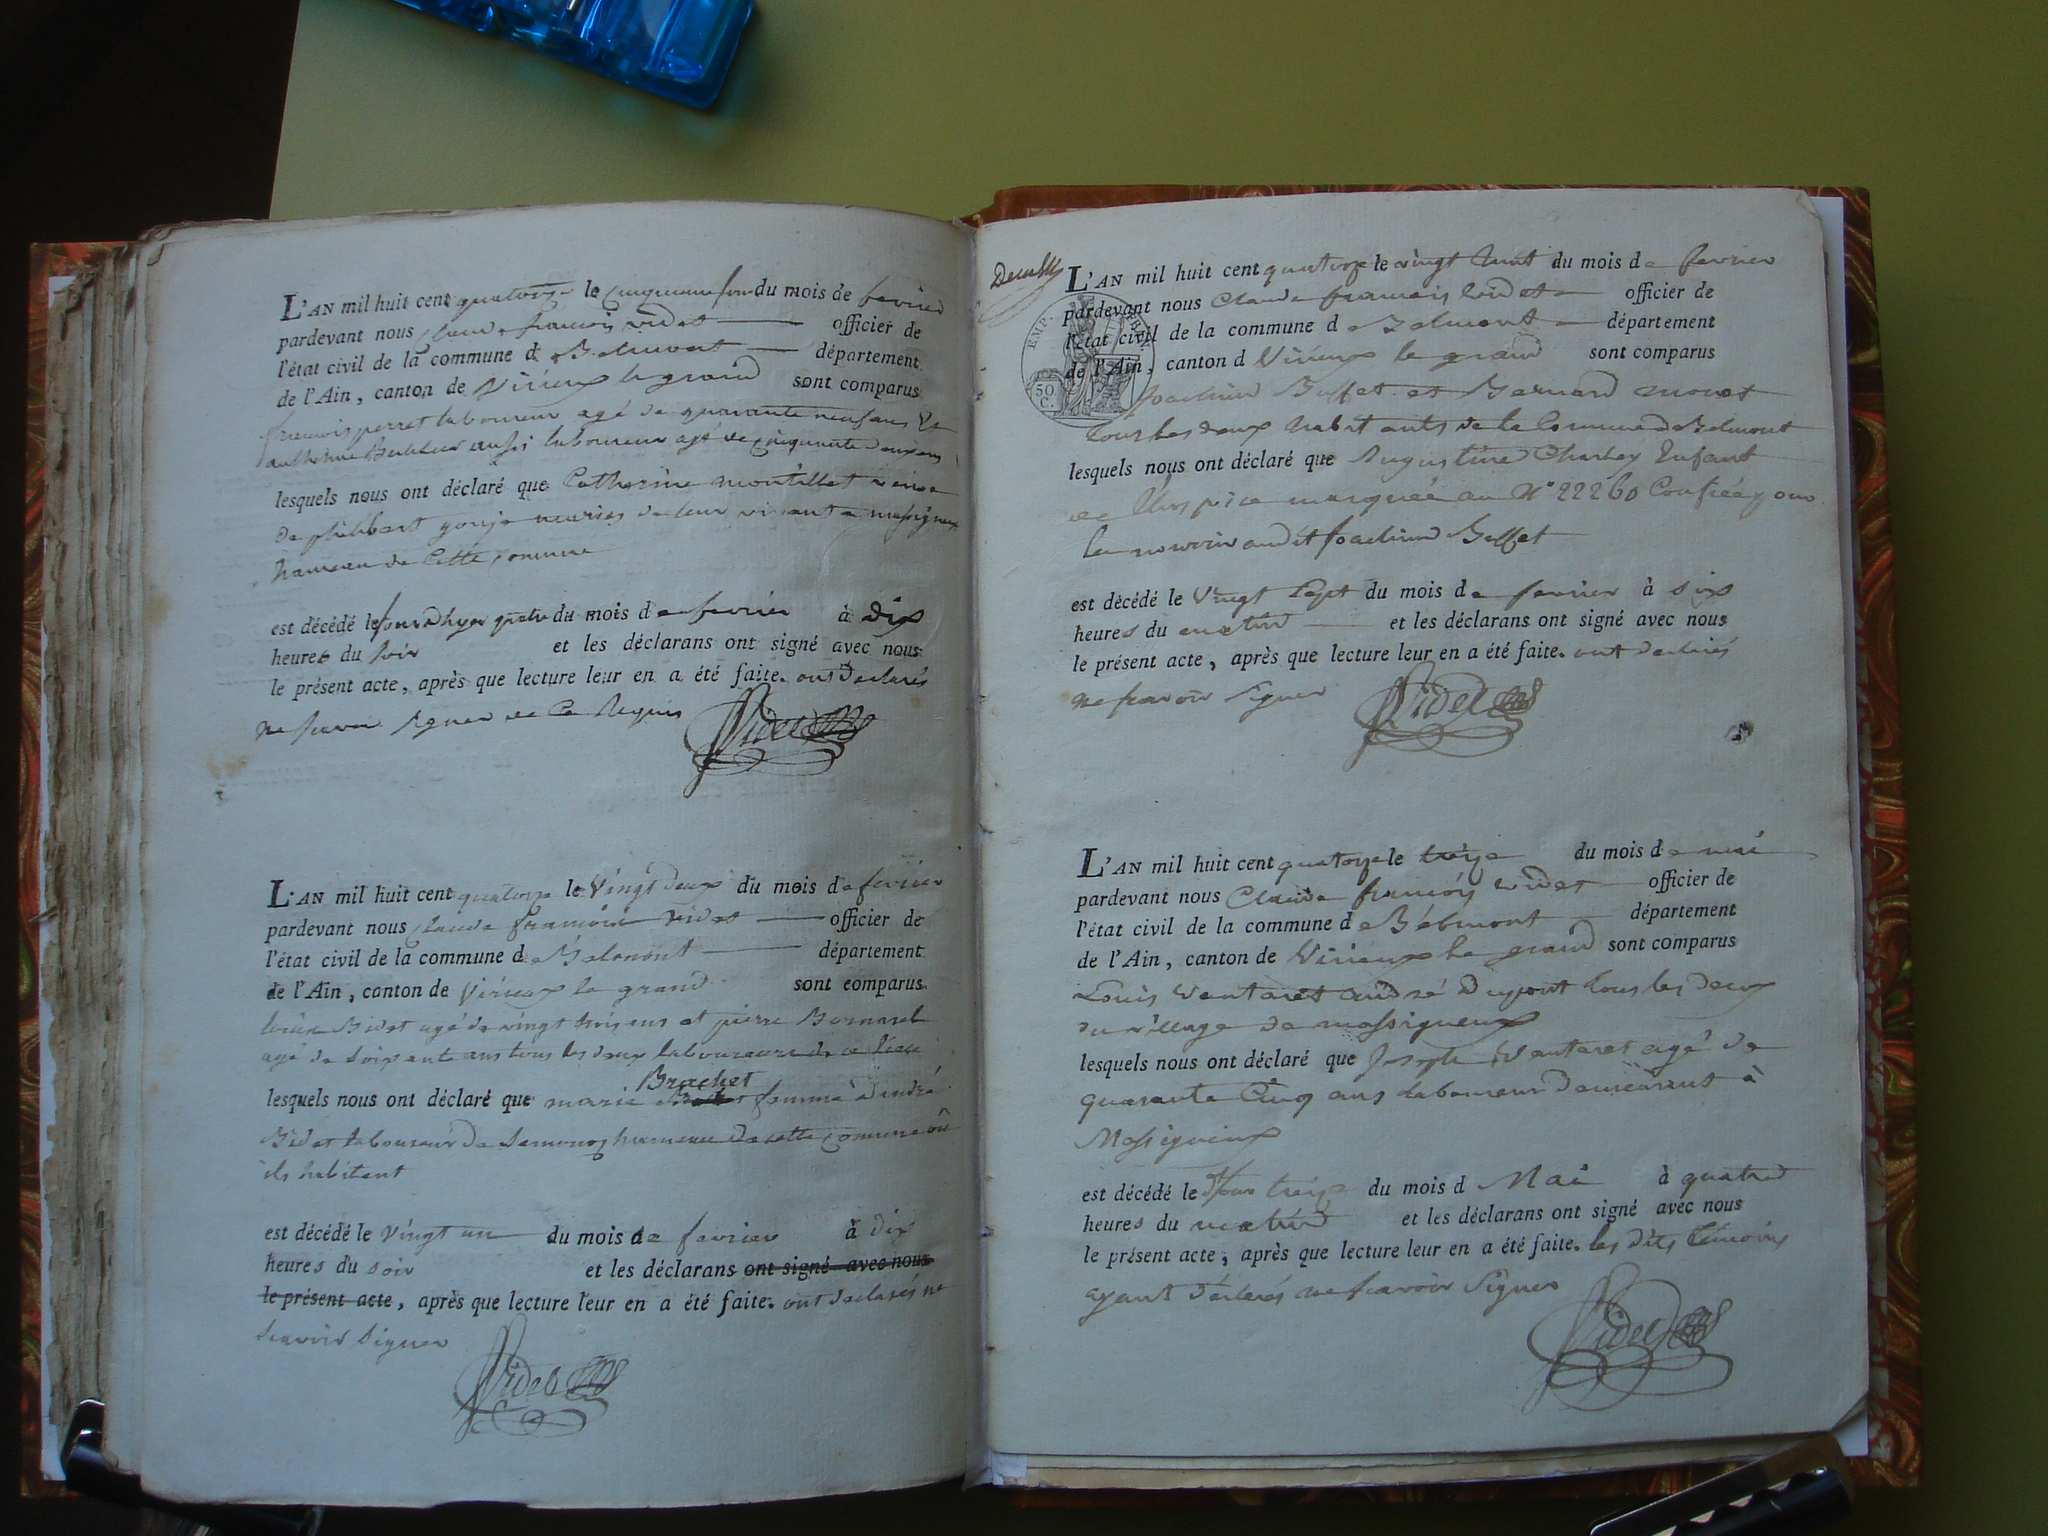 L'AN mil huit cent quatorze le cinquieme jour du mois de fevrier
pardevant nous Claude françois videt officier de
l'état civil de la commune de Belmont département
de l'Ain, canton de Virieux le grand sont comparus
francois perret laboureur agé de quarante neuf ans Et
anthelme aussi laboureur agé de cinquante deux ans
lesquels nous ont déclaré que Catherine montillet veuve
de philibert gonje maries de leur vivant a massigneux
hameau de Cette comune
est décédé le jourdhyer quatre du mois de fevrier à dix
heures du soir et les déclarans ont signé avec nous
le présent acte, après que lecture leur en a été faite. ont declarés
ne scavoir signer de Ce Requis Videt
L'AN mil huit cent quatorze le Vingt deux du mois de fevrier
pardevant nous Claude francois videt officier de
l'état civil de la commune de Belmont département
de l'Ain, canton de Virieux le grand sont comparus
Bidet agé de vingt trois ans et pierre Bornarel
agé de soixante ans tous les deux laboureurs de ce lieu
Brachet
lesquels nous ont déclaré que marie femme à andré
Bidet laboureur de hameau de cette comune où
ils habitent
est décédé le Vingt un du mois de fevrier à dix
heures du soir et les déclarans ont signé avec nous
le présent acte, après que lecture leur en a été faite. ont declarés ne
scavoir signer Videt
L'AN mil huit cent quatorze le vingt huit du mois de fevrier
pardevant nous Claude francois videt officier de
l'état civil de la commune de Belmont département
de l'Ain, canton d Virieux le grand sont comparus
EMP.
50
C.
Joachim Buffet et Bernard monet
tous les deux habitants de la Commune de Belmont
lesquels nous ont déclaré que Augustine Charley Enfant
de l'hospice marquée au N° 22260 Confiée pour
la nourrir audit Joachim Buffet
est décédé le Vingt sept du mois de fevrier à six
heures du matin et les déclarans ont signé avec nous
le présent acte, après que lecture leur en a été faite. ont declarés
ne scavoir signer Videt
L'AN mil huit cent quatorze le treize du mois de mai
pardevant nous Claude françois videt officier de
l'état civil de la commune de Bélmont département
de l'Ain, canton de Virieux le grand sont comparus
Louis Ventaret andré Dupont tous les deux
du village de massigneux
lesquels nous ont déclaré que Joseph Ventaret agé de
quarante Cinq ans laboureur demeurant à
Massigneux
est décédé le Jour treize du mois d Mai à quatre
heures du matin et les déclarans ont signé avec nous
le présent acte, après que lecture leur en a été faite. les dits témoins
ayant déclarés ne scavoir signer Videt